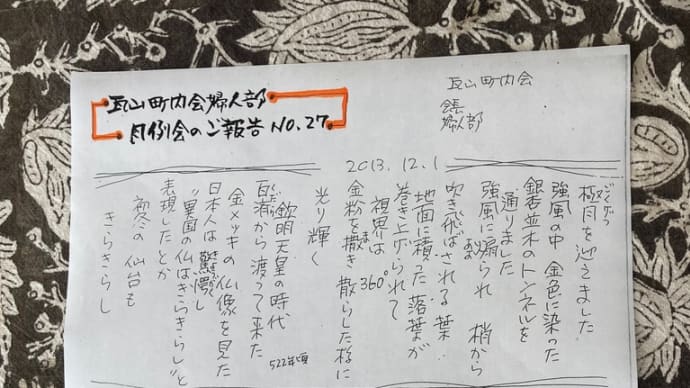 瓦山町内会婦人部
月例会のご報告 NO.27
瓦山町内会
会長
婦人部
2013.12.1
極月を迎えました
ごくげつ
強風の中 金色に染った
銀杏並木のトンネルを
通りました
強風に煽られ 梢から
あお
吹き飛ばされる葉
地面に積った落葉が
巻き上げられて
視界は 360°
金粉を撒き散らした様に
ま
光り輝く
欽明天皇の時代
522年頃
百済から渡って来た
くだら
金メッキの仏像を見た
日本人は驚愕し
"異国の仏はきらきらし"と
表現したとか
翠冬の仙台も
きらきらし